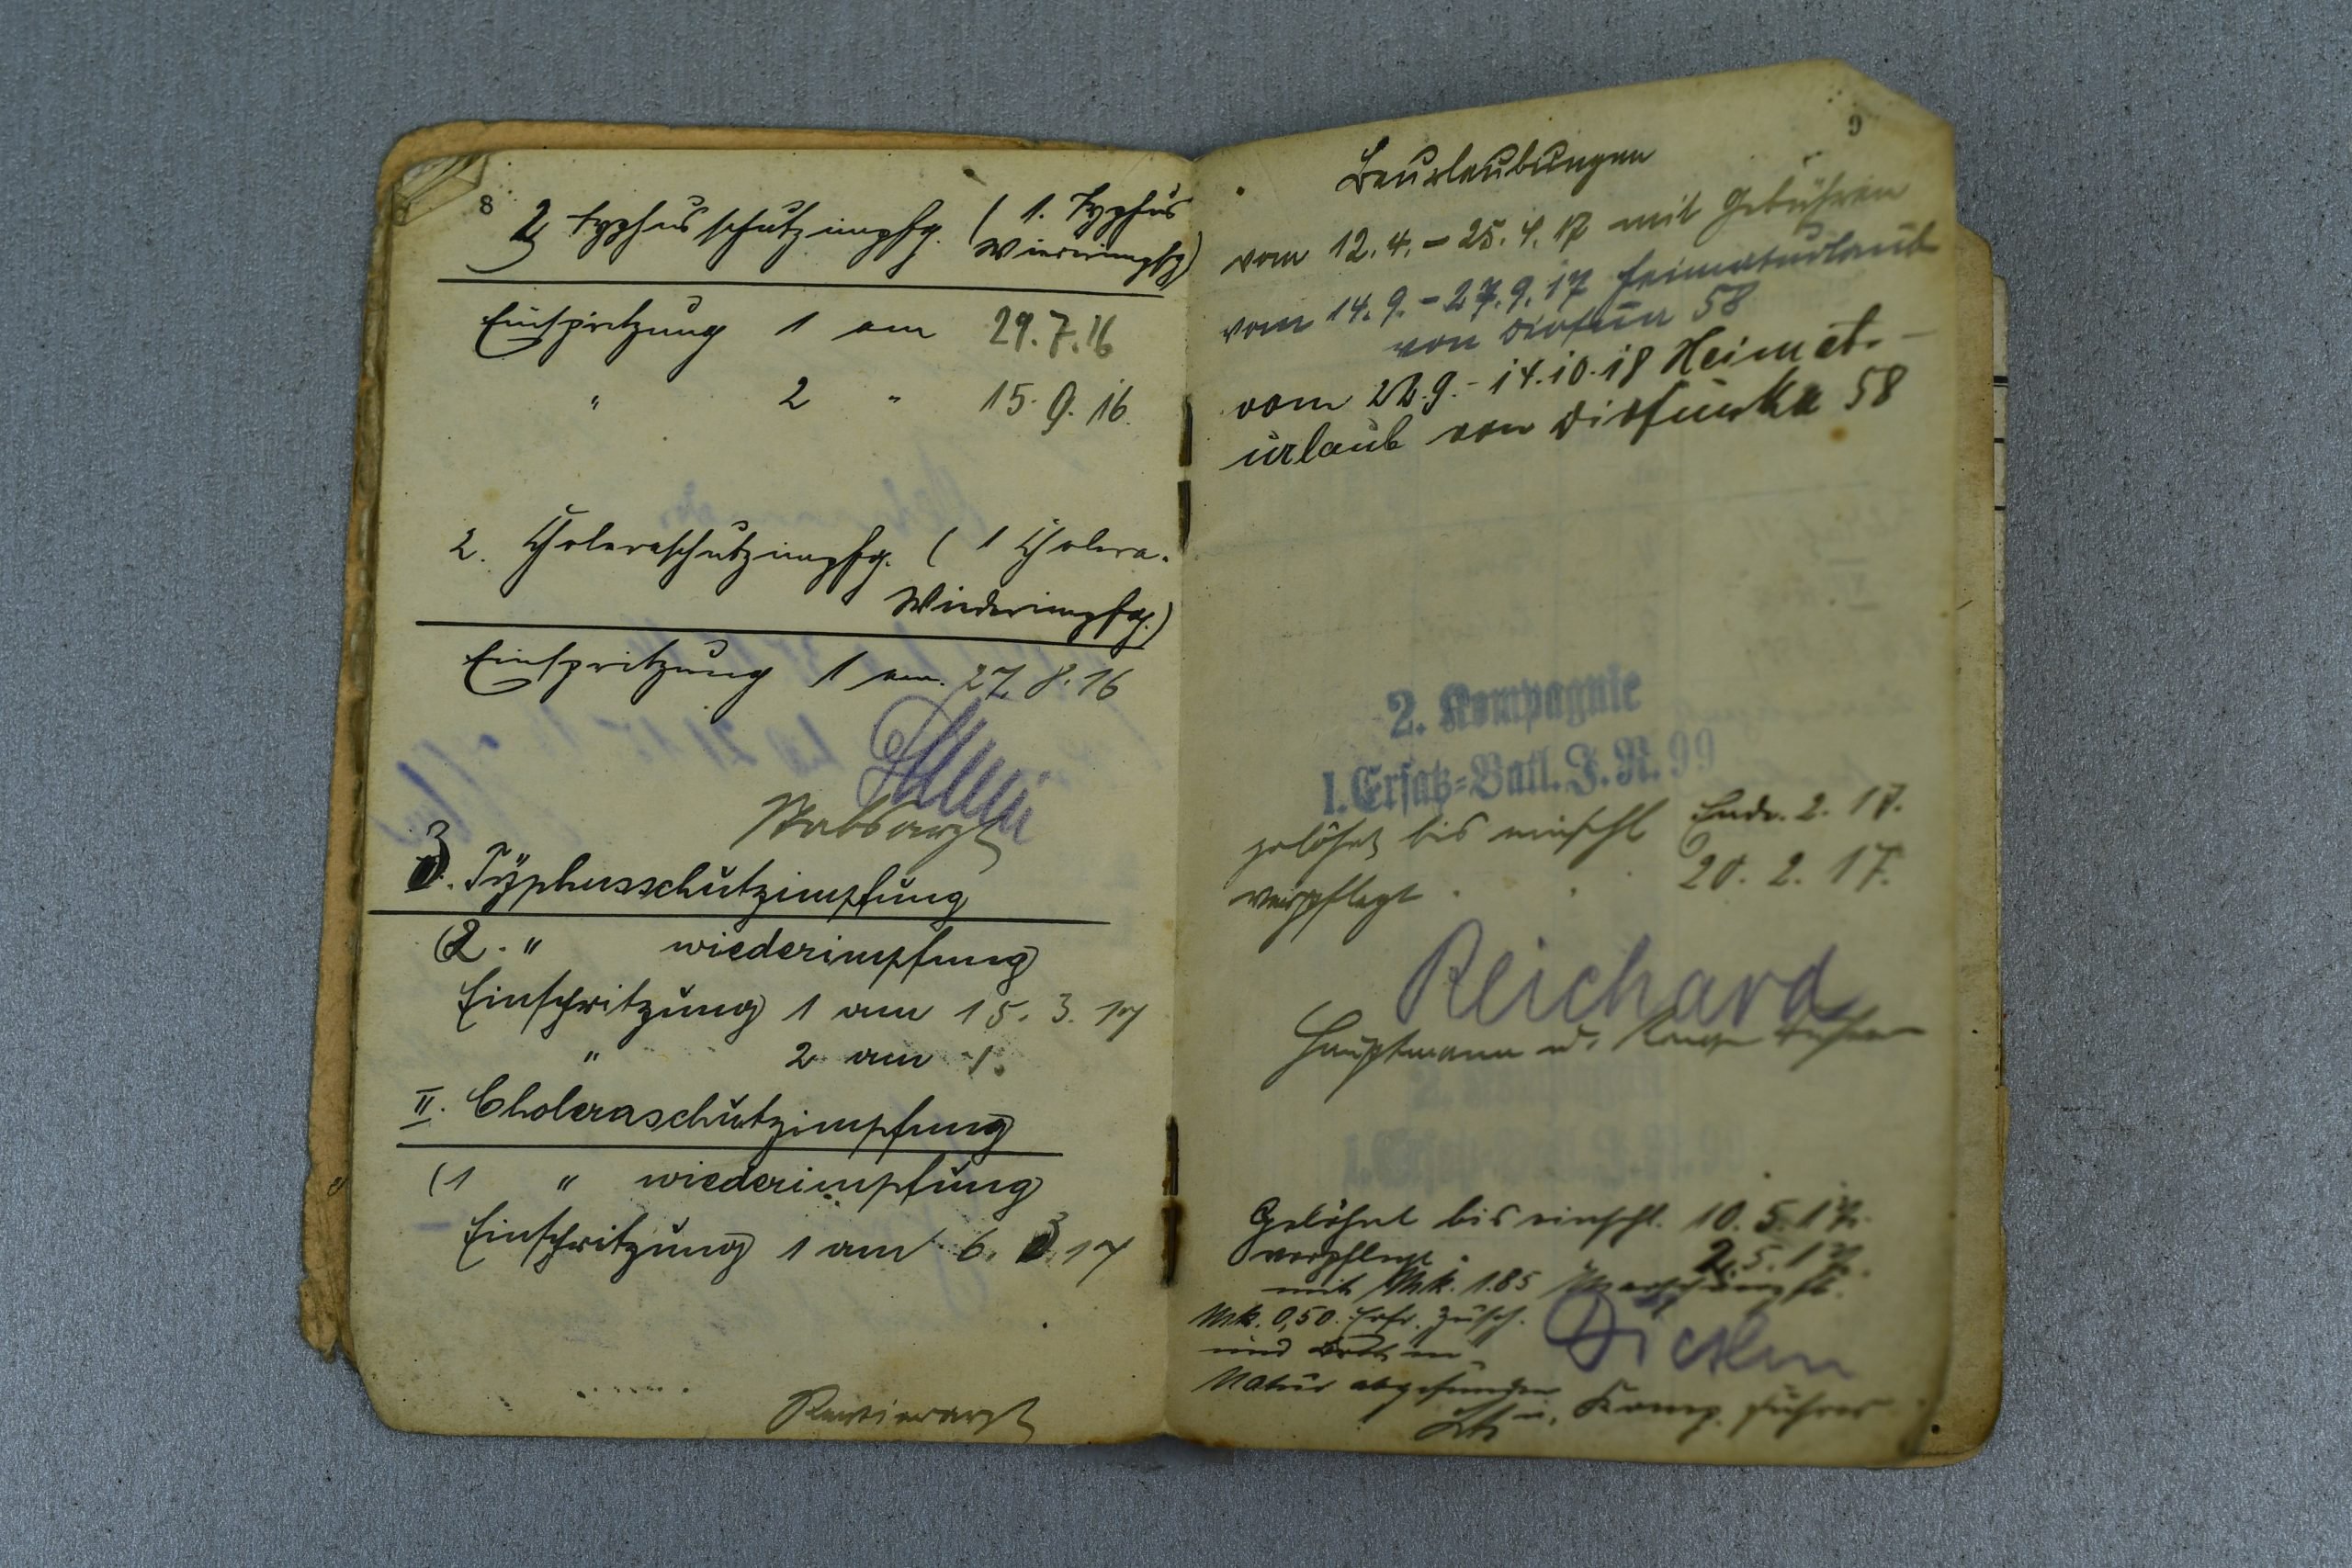 8
2 Typhusschutzimpfg. (1. Typhus
Wiederimpfg)
Einspritzung 1 am 29.7.16
" 2 " 15.9.16.
2. Choleraschutzimpfg. (1 Cholera-
Wiederimpfg.)
Einspritzung 1 am 27.8.16
Stabsarzt
3. Typhusschutzimpfung
(2. " wiederimpfung
Einspritzung 1 am 15.3.17
" 2 am 1.
II. Choleraschutzimpfung
(1 " wiederimpfung
Einspritzung 1 am 6.3.17
Revierarzt
9
Beurlaubungen
vom 12.4.-25.4.17 mit Gebühren
vom 14.9.-27.9.17 Heimaturlaub
von Divfunka 58
vom 22.9.-14.10.18 Heimat-
urlaub von Divfunka 58
2. Kompagnie
1. Ersatz-Batl. J. R. 99
gelöhnt bis einschl Ende 2.17.
verpflegt " " 20.2.17.
Reichard
Hauptmann u. Komp. Führer
Gelöhnt bis einschl. 10.5.17.
verpflegt " 2.5.17.
mit Mk. 1.85
Mk. 0,50. Erfr. Zusch.
und Brot in
Natur abgefunden
Lt. u. Komp. Führer